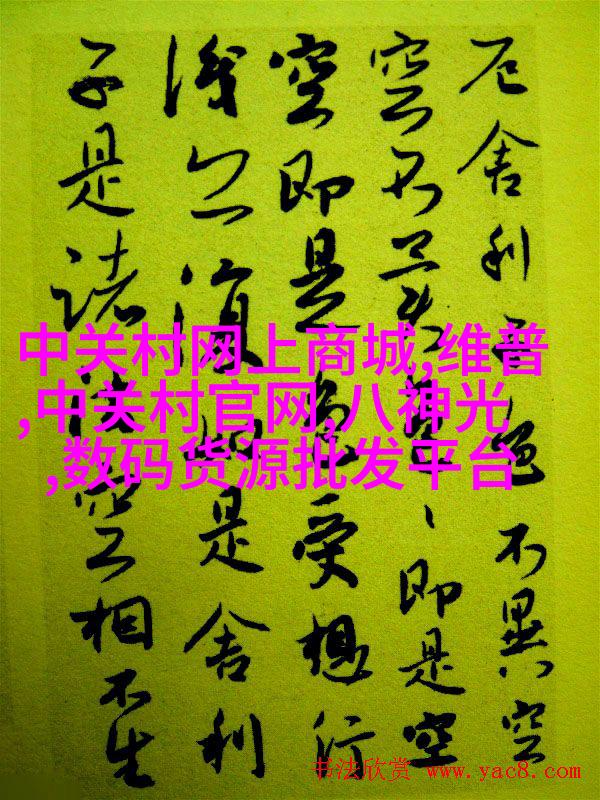 厄舍利子色不異空
空不異色々即是空
空即是色受想行
識亦復如是舍利
子是諸法空相不生
中关村网上商城,维普
,中关村官网,八神光
,数码货源批发平台
书法欣赏 www.yac8.com